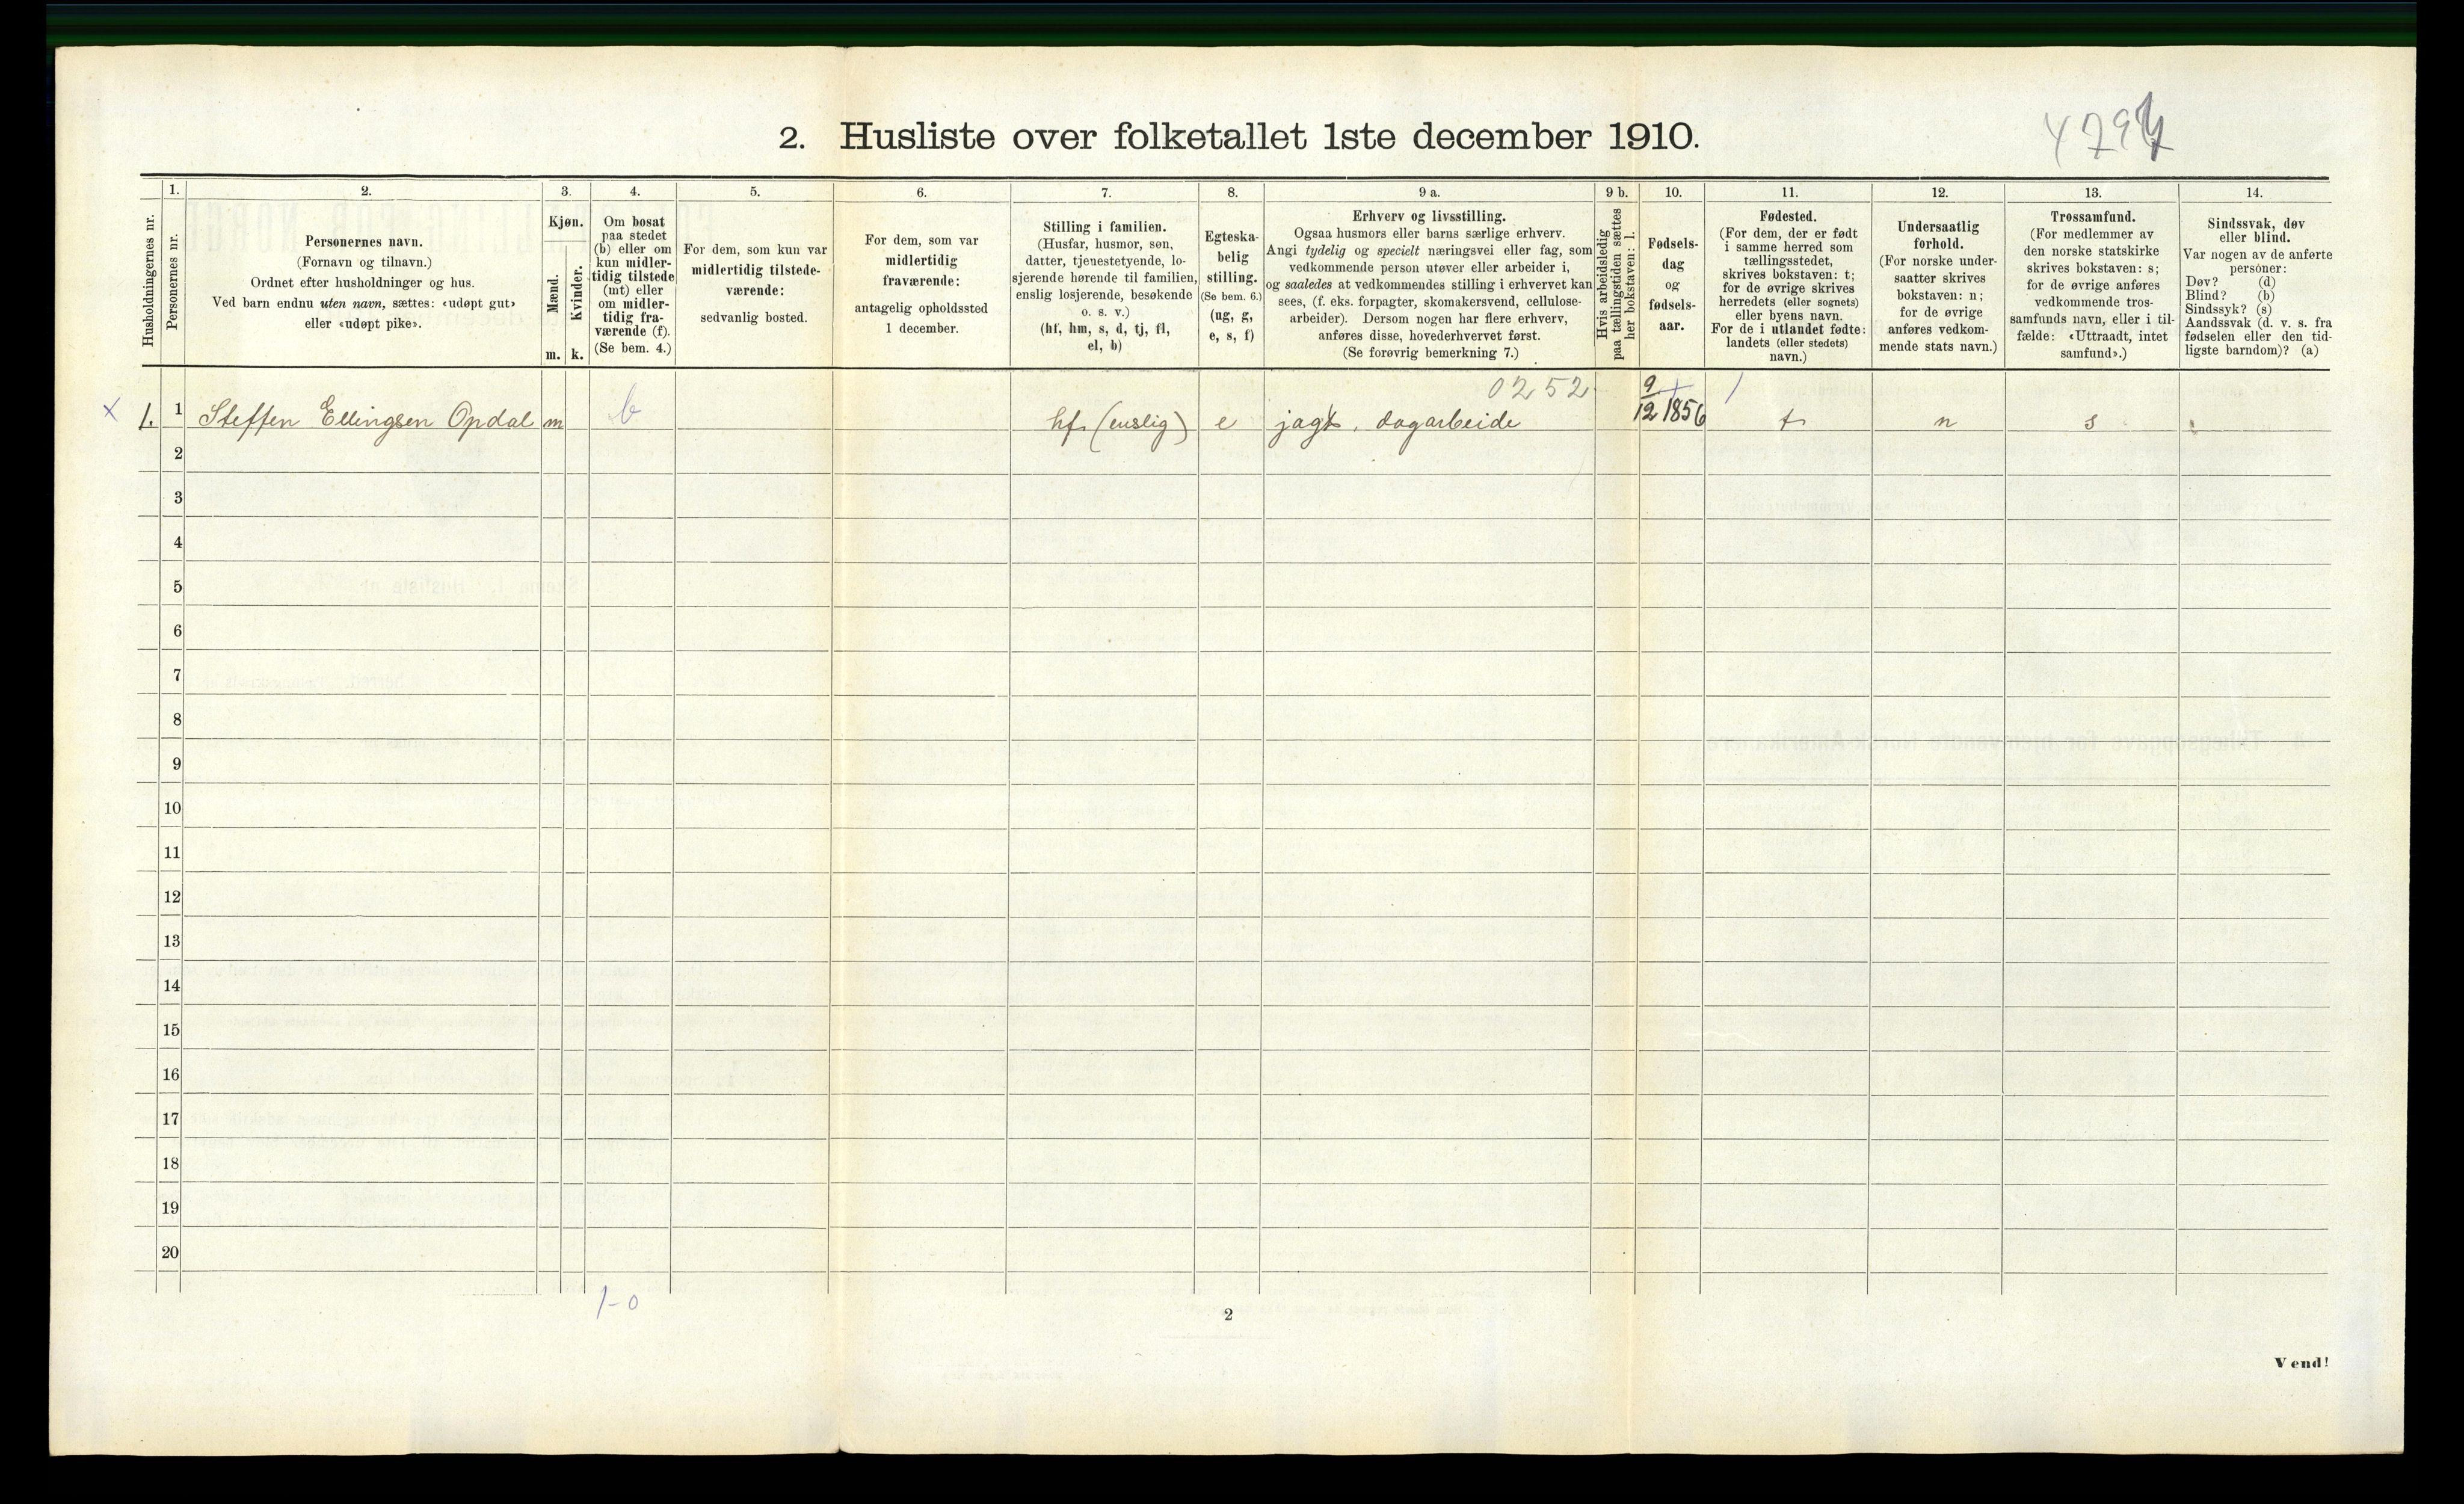 2. Husliste over folketallet 1ste december 1910.
Husholdningernes nr.
1.
Personernes nr.
2.
Personernes navn.
(Fornavn og tilnavn.)
Ordnet efter husholdninger og hus.
Ved barn endnu uten navn, sættes: «udøpt gut»
eller «udøpt pike».
3.
Kjøn.
Mænd.
Kvinder.
m. k.
4.
Om bosat
paa stedet
(b) eller om
kun midler-
tidig tilstede
(mt) eller
om midler-
tidig fra-
værende (f).
(Se bem. 4.)
5.
For dem, som kun var
midlertidig tilstede-
værende:
sedvanlig bosted.
6.
For dem, som var
midlertidig
fraværende:
antagelig opholdssted
1 december.
7.
Stilling i familien.
(Husfar, husmor, søn,
datter, tjenestetyende, lo-
sjerende hørende til familien,
enslig losjerende, besøkende
o. s. v.)
(hf, hm, s, d, tj, fl,
el, b)
8.
Egteska-
belig
stilling.
(Se bem. 6.)
(ug, g,
e, s, f)
9 a.
Erhverv og livsstilling.
Ogsaa husmors eller barns særlige erhverv.
Angi tydelig og specielt næringsvei eller fag, som
vedkommende person utøver eller arbeider i,
og saaledes at vedkommendes stilling i erhvervet kan
sees, (f. eks. forpagter, skomakersvend, cellulose-
arbeider). Dersom nogen har flere erhverv,
anføres disse, hovederhvervet først.
(Se forøvrig bemerkning 7.)
9 b.
Hvis arbeidsledig
paa tællingstiden sættes
her bokstaven: l.
10.
Fødsels-
dag
og
fødsels-
aar.
11.
Fødested.
(For dem, der er født
i samme herred som
tællingsstedet,
skrives bokstaven: t;
for de øvrige skrives
herredets (eller sognets)
eller byens navn.
For de i utlandet fødte:
landets (eller stedets)
navn.)
12.
Undersaatlig
forhold.
(For norske under-
saatter skrives
bokstaven: n;
for de øvrige
anføres vedkom-
mende stats navn.)
13.
Trossamfund.
(For medlemmer av
den norske statskirke
skrives bokstaven: s;
for de øvrige anføres
vedkommende tros-
samfunds navn, eller i til-
fælde: «Uttraadt, intet
samfund».)
14.
Sindssvak, døv
eller blind.
Var nogen av de anførte
personer:
Døv? (d)
Blind? (b)
Sindssyk? (s)
Aandssvak (d. v. s. fra
fødselen eller den tid-
ligste barndom)? (a)
0252
x 1. 1 Steffen Ellingsen Opdal m b hf. (enslig) e jagt, dagarbeide 9/12 1856 t n s
2
3
4
5
6
7
8
9
10
11
12
13
14
15
16
17
18
19
20
1-0
2
Vend!